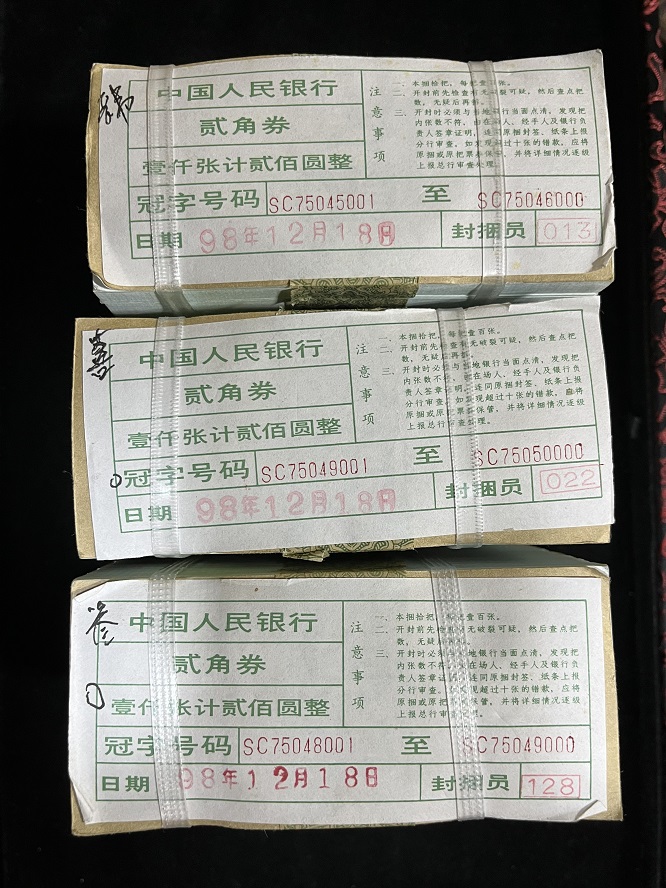 中国人民银行
贰角券
壹仟张计贰佰圆整
注意事项
一、本捆拾把，每把壹百张。
二、开封前先检查有无破裂可疑，然后查点把
数，无疑后再拆。
三、开封时必须与当地银行当面点清，发现把
内张数不符，由在场人、经手人及银行负
责人签章证明，连同原捆封签、纸条上报
分行审查。如发现超过十张的错款，应将
原捆或原把票券保管，并将详细情况逐级
上报总行审查处理。
冠字号码 SC75045001 至 SC75046000
日期 98年12月18日 封捆员 013
喜
中国人民银行
贰角券
壹仟张计贰佰圆整
注意事项
一、本捆拾把，每把壹百张。
二、开封前先检查有无破裂可疑，然后查点把
数，无疑后再拆。
三、开封时必须与当地银行当面点清，发现把
内张数不符，由在场人、经手人及银行负
责人签章证明，连同原捆封签、纸条上报
分行审查。如发现超过十张的错款，应将
原捆或原把票券保管，并将详细情况逐级
上报总行审查处理。
冠字号码 SC75049001 至 SC75050000
日期 98年12月18日 封捆员 022
中国人民银行
贰角券
壹仟张计贰佰圆整
注意事项
一、本捆拾把，每把壹百张。
二、开封前先检查有无破裂可疑，然后查点把
数，无疑后再拆。
三、开封时必须与当地银行当面点清，发现把
内张数不符，由在场人、经手人及银行负
责人签章证明，连同原捆封签、纸条上报
分行审查。如发现超过十张的错款，应将
原捆或原把票券保管，并将详细情况逐级
上报总行审查处理。
冠字号码 SC75048001 至 SC75049000
日期 98年12月18日 封捆员 128